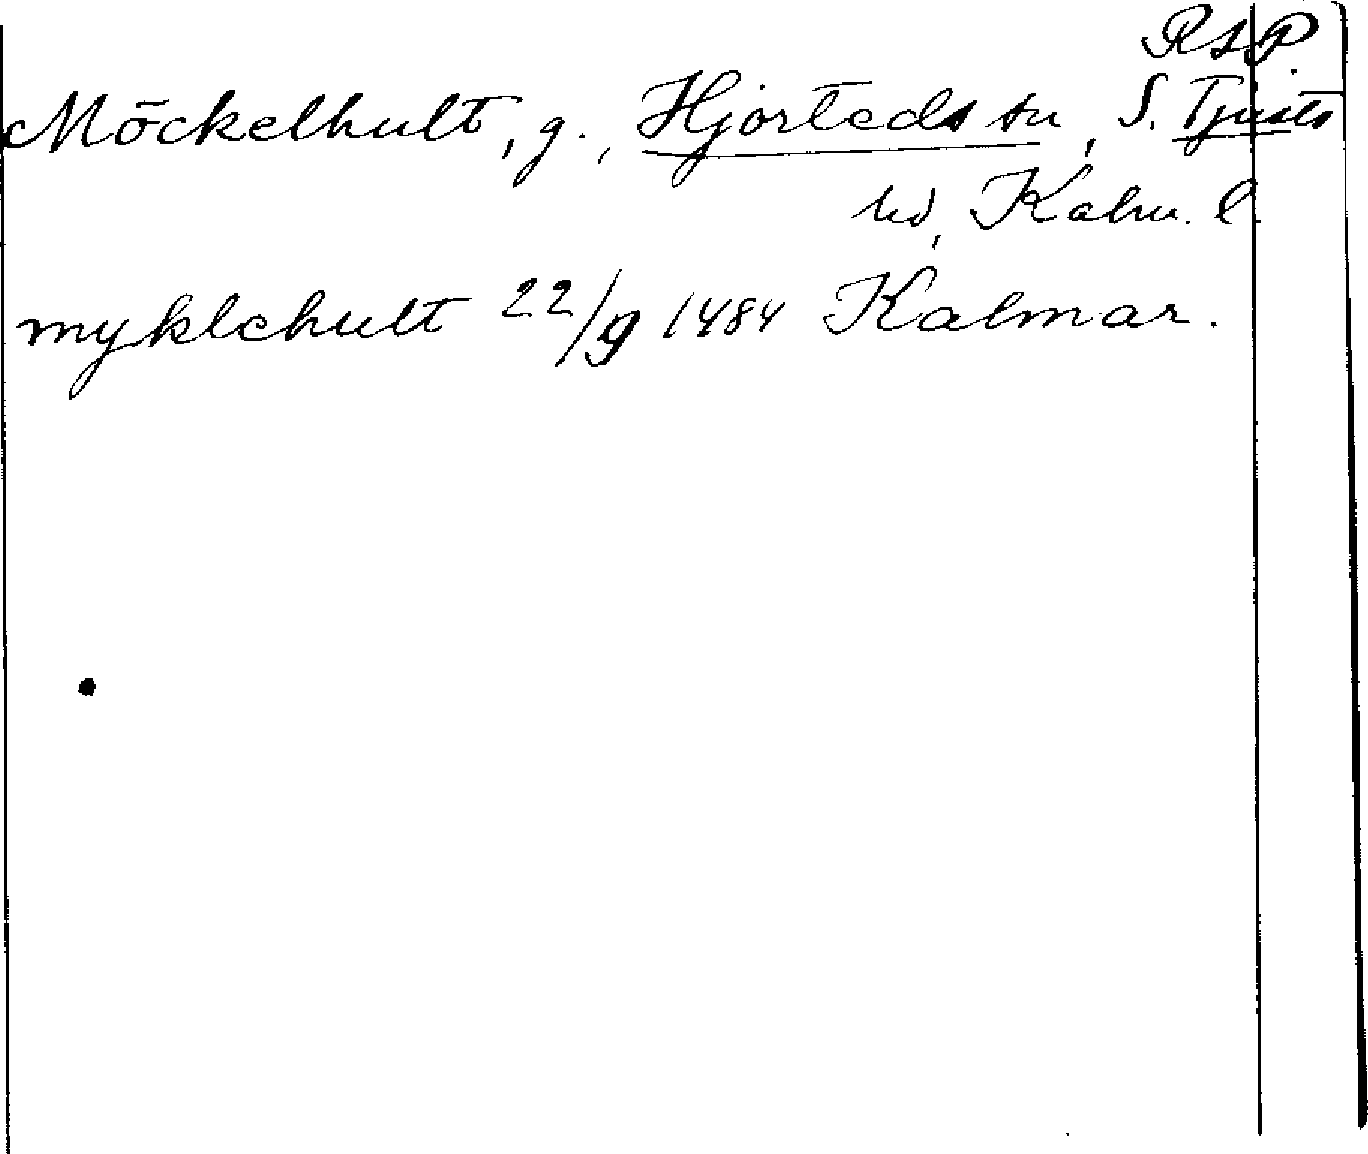 RSP
Möckelhult, g., Hjorteds sn, S. Tjusts
hd, Kalm. l.
myklehult 22/9 1484 Kalmar.